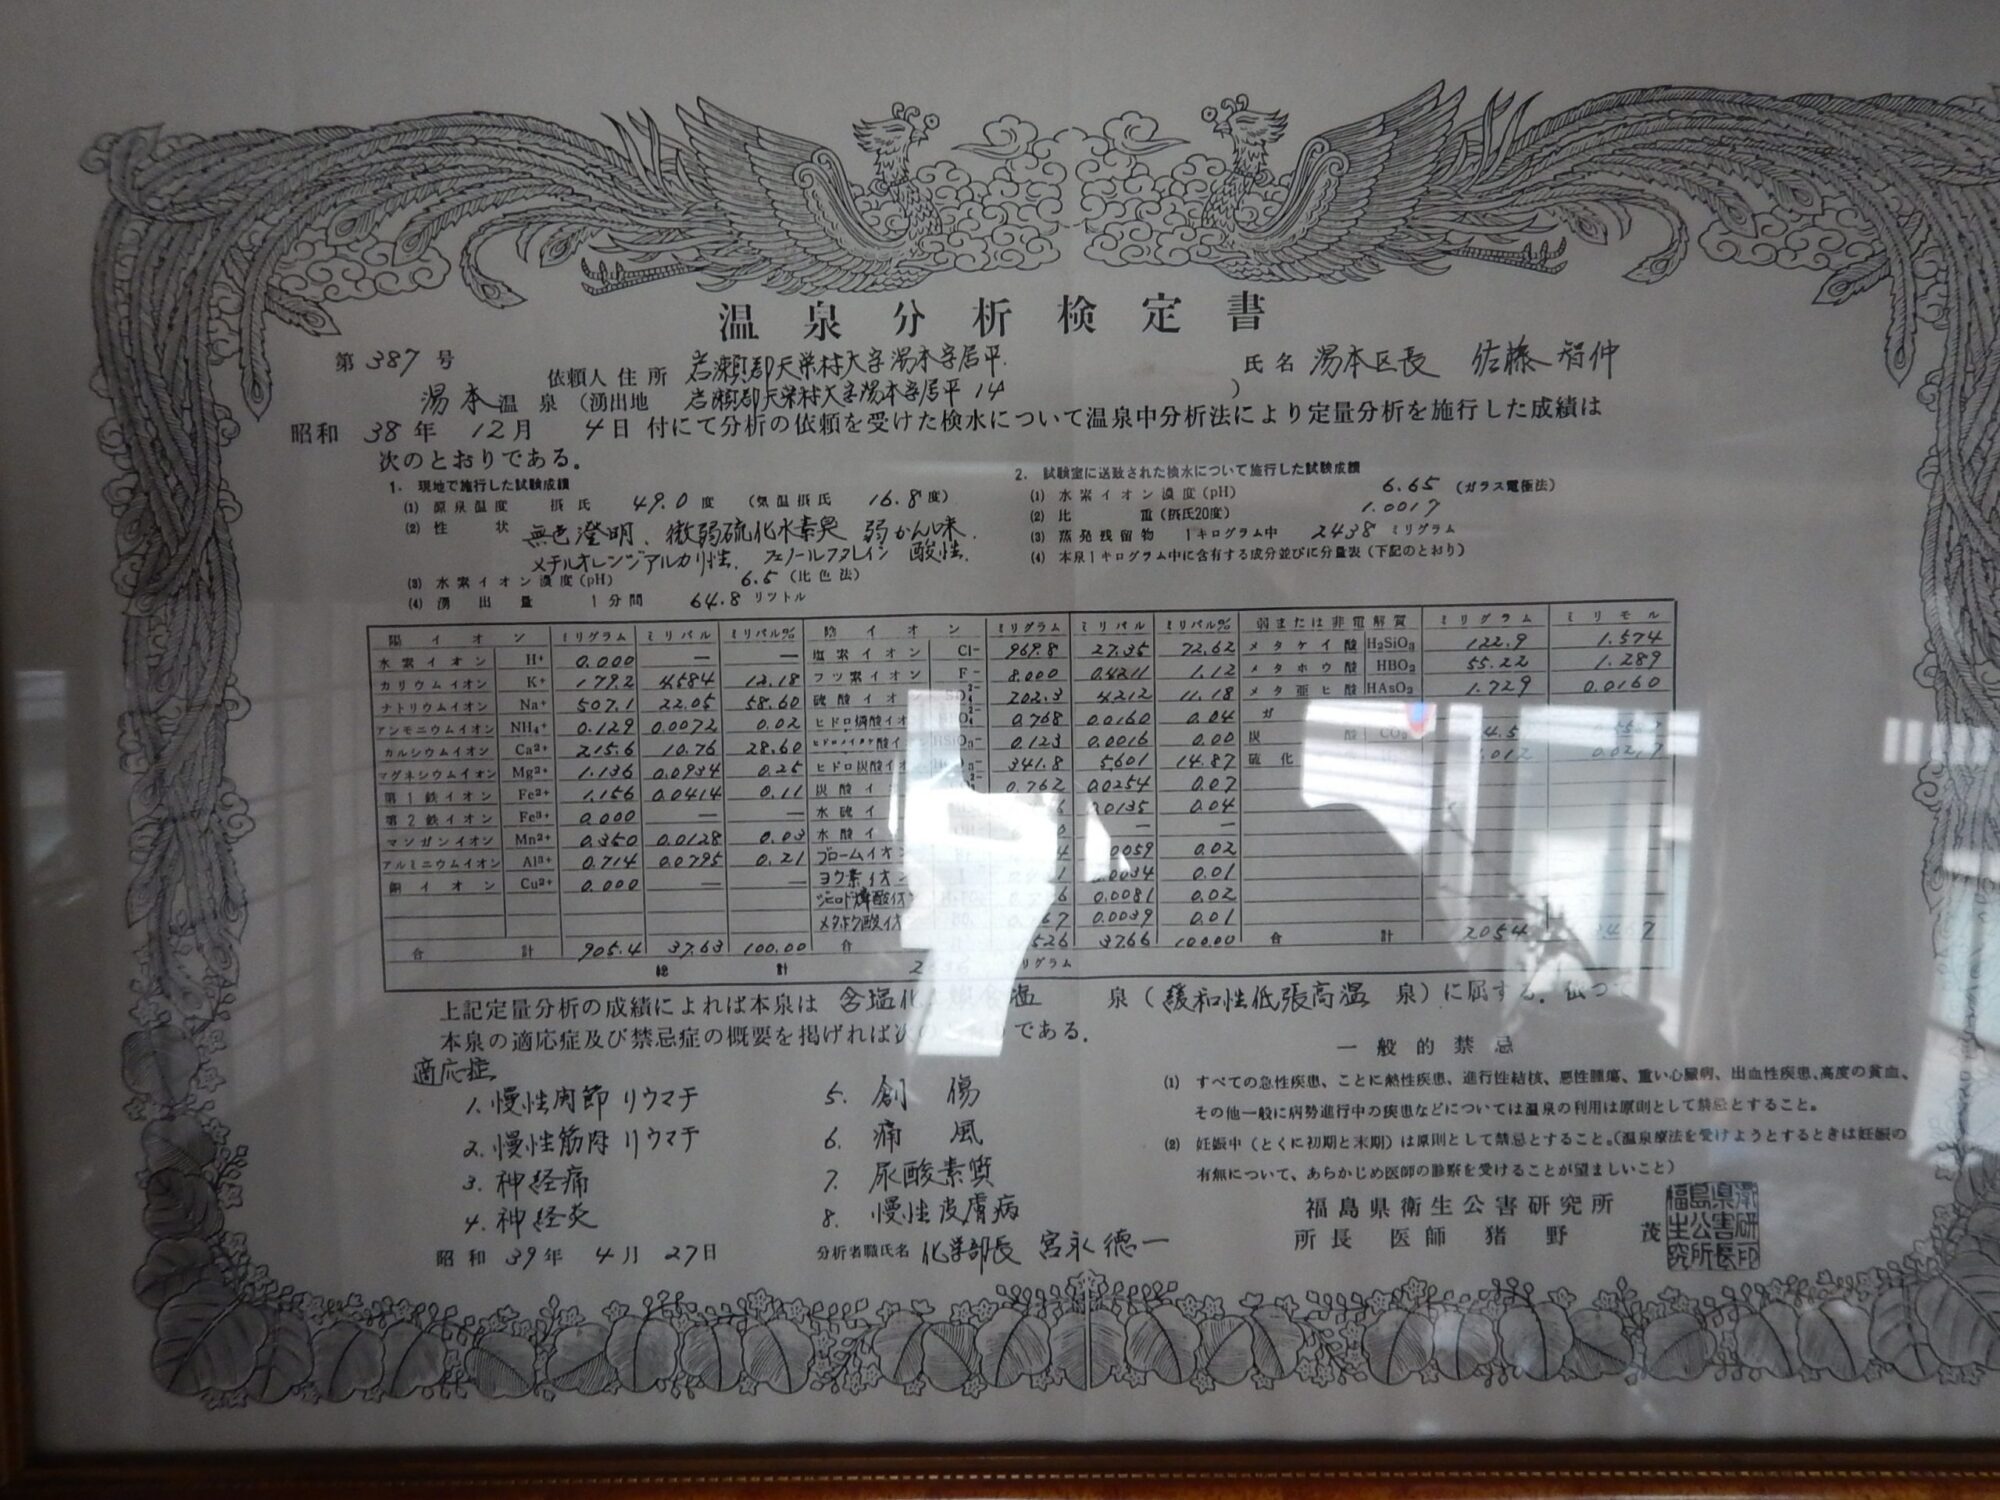 温泉分析検定書
第 387 号
依頼人住所 岩瀬郡天栄村大字湯本字居平 氏名 湯本区長 佐藤 智仲
湯本温泉(湧出地 岩瀬郡天栄村大字湯本字居平 14 )
昭和 38年 12月 4日 付にて分析の依頼を受けた検水について温泉中分析法により定量分析を施行した成績は
次のとおりである。
1. 現地で施行した試験成績
(1) 源泉温度 摂氏 49.0 度 (気温摂氏 16.8度)
(2) 性状 無色澄明、微弱硫化水素臭 弱かん味、
メチルオレンジアルカリ性、フェノールフタレイン 酸性、
(3) 水素イオン濃度(pH) 6.5 (比色法)
(4) 湧出量 1分間 64.8 リットル
2. 試験室に送致された検水について施行した試験成績
(1) 水素イオン濃度(pH) 6.65 (ガラス電極法)
(2) 比重(摂氏20度) 1.0017
(3) 蒸発残留物 1キログラム中 2438 ミリグラム
(4) 本泉1キログラム中に含有する成分並びに分量表(下記のとおり)
陽イオン ミリグラム ミリバル ミリバル%
水素イオン H+ 0.000 — —
カリウムイオン K+ 179.2 4.584 12.18
ナトリウムイオン Na+ 507.1 22.05 58.60
アンモニウムイオン NH4+ 0.129 0.0072 0.02
カルシウムイオン Ca2+ 215.6 10.76 28.60
マグネシウムイオン Mg2+ 1.136 0.0934 0.25
第1鉄イオン Fe2+ 1.156 0.0414 0.11
第2鉄イオン Fe3+ 0.000 — —
マンガンイオン Mn2+ 0.350 0.0128 0.03
アルミニウムイオン Al3+ 0.714 0.0795 0.21
銅イオン Cu2+ 0.000 — —
合計 905.4 37.63 100.00
陰イオン ミリグラム ミリバル ミリバル%
塩素イオン Cl- 969.8 27.35 72.62
フッ素イオン F- 8.000 0.4211 1.12
硫酸イオン 202.3 4.212 11.18
ヒドロ燐酸イオン 0.768 0.0160 0.04
ヒドロメイタケ酸イ 0.123 0.0016 0.00
ヒドロ炭酸イオン 341.8 5.601 14.87
炭酸イ 0.762 0.0254 0.07
水硫イ 0.0135 0.04
水酸イ — —
ブロームイオ 0.0059 0.02
ヨウ素イオン 0.0034 0.01
ジヒロド燐酸イオ 0.0081 0.02
メタホウ酸イオ 0.0039 0.01
合 37.66 100.00
弱または非電解質 ミリグラム ミリモル
メタケイ酸 H2SiO3 122.9 1.574
メタホウ酸 HBO2 55.22 1.289
メタ亜ヒ酸 HAsO2 1.729 0.0160
ガ
炭 酸 CO2
硫化
合計 205.4
総計 ミリグラム
上記定量分析の成績によれば本泉は 含塩化 泉(緩和性低張高温 泉)に属する。依つて
本泉の適応症及び禁忌症の概要を掲げれば次の りである。
適応症
1. 慢性関節リウマチ
2. 慢性筋肉リウマチ
3. 神経痛
4. 神経炎
5. 創傷
6. 痛風
7. 尿酸素質
8. 慢性皮膚病
一般的禁忌
(1) すべての急性疾患、ことに熱性疾患、進行性結核、悪性腫瘍、重い心臓病、出血性疾患、高度の貧血、
その他一般に病勢進行中の疾患などについては温泉の利用は原則として禁忌とすること。
(2) 妊娠中(とくに初期と末期)は原則として禁忌とすること。(温泉療法を受けようとするときは妊娠の
有無について、あらかじめ医師の診察を受けることが望ましいこと)
昭和 39年 4月 27日
分析者職氏名 化学部長 宮永徳一
福島県衛生公害研究所
所長 医師 猪野 茂
福島県衛生公害研究所長印